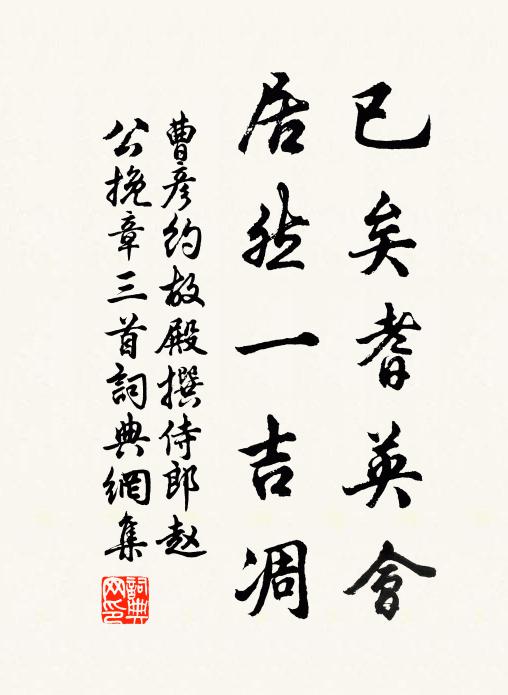 已矣耆英會
居然一吉凋
曹彦約故殿撰侍郎赵
公挽章三首詞典網集
詞典網印